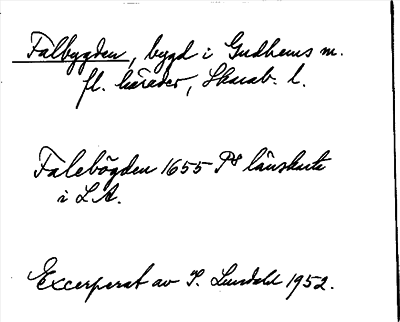 Falbygden, bygd i Gudhems m.
fl. härader, Skarab. l.
Falebögden 1655 länskarta
i LA.
Excerperat av I. Lundahl 1952.